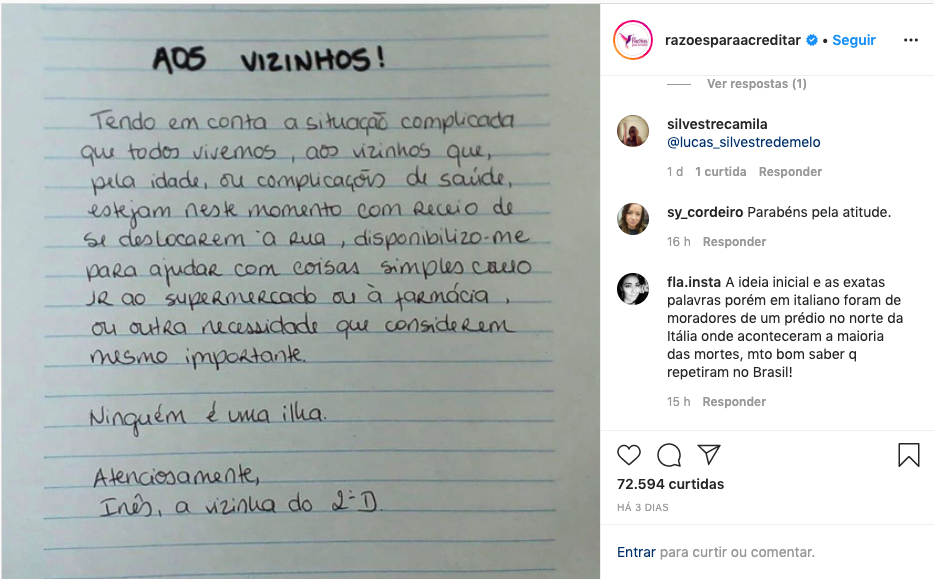 AOS VIZINHOS!
Tendo em conta a situação complicada
que todos vivemos, aos vizinhos que,
pela idade, ou complicações de saúde,
estejam neste momento com receio de
se deslocarem à rua, disponibilizo-me
para ajudar com coisas simples como
IR ao supermercado ou à farmácia,
ou outra necessidade que considerem
mesmo importante.
Ninguém é uma ilha.
Atenciosamente,
Inês, a vizinha do 2º D.
razoesparaacreditar • Seguir
Ver respostas (1)
silvestrecamila
@lucas_silvestredemelo
1 d 1 curtida Responder
sy_cordeiro Parabéns pela atitude.
16 h Responder
fla.insta A ideia inicial e as exatas
palavras porém em italiano foram de
moradores de um prédio no norte da
Itália onde aconteceram a maioria
das mortes, mto bom saber q
repetiram no Brasil!
15 h Responder
72.594 curtidas
HÁ 3 DIAS
Entrar para curtir ou comentar.